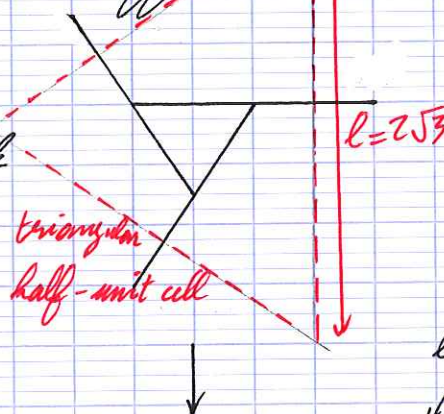 l = 2√3
triangular
half-unit cell